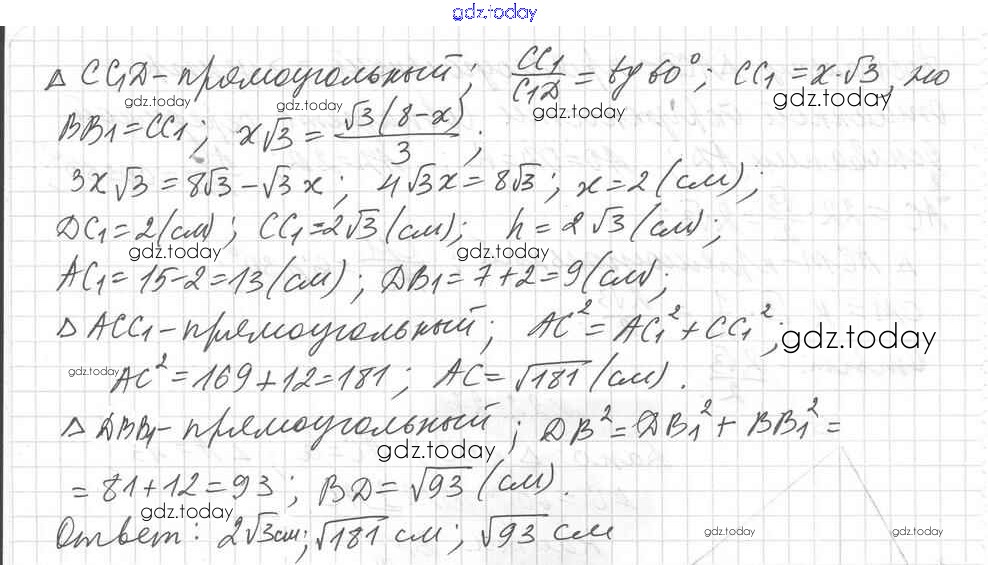 gdz.today
△ CC₁D - прямоугольный; CC₁/C₁D = tg 60°; CC₁ = x·√3, но
gdz.today gdz.today gdz.today
BB₁ = CC₁; x√3 = √3(8-x)/3;
3x√3 = 8√3 - √3x; 4√3x = 8√3; x = 2 (см);
DC₁ = 2 (см); CC₁ = 2√3 (см); h = 2√3 (см);
gdz.today gdz.today
AC₁ = 15-2 = 13 (см); DB₁ = 7+2 = 9 (см);
△ ACC₁ - прямоугольный; AC² = AC₁² + CC₁²;
gdz.today
gdz.today
AC² = 169 + 12 = 181; AC = √181 (см).
△ DBB₁ - прямоугольный; DB² = DB₁² + BB₁² =
gdz.today
= 81 + 12 = 93; BD = √93 (см).
gdz.today
Ответ: 2√3 см; √181 см; √93 см
gdz.today gdz.today